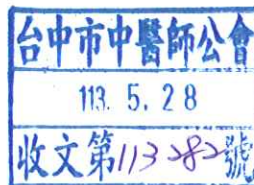 台中市中醫師公會
113. 5. 28
收文第113282號